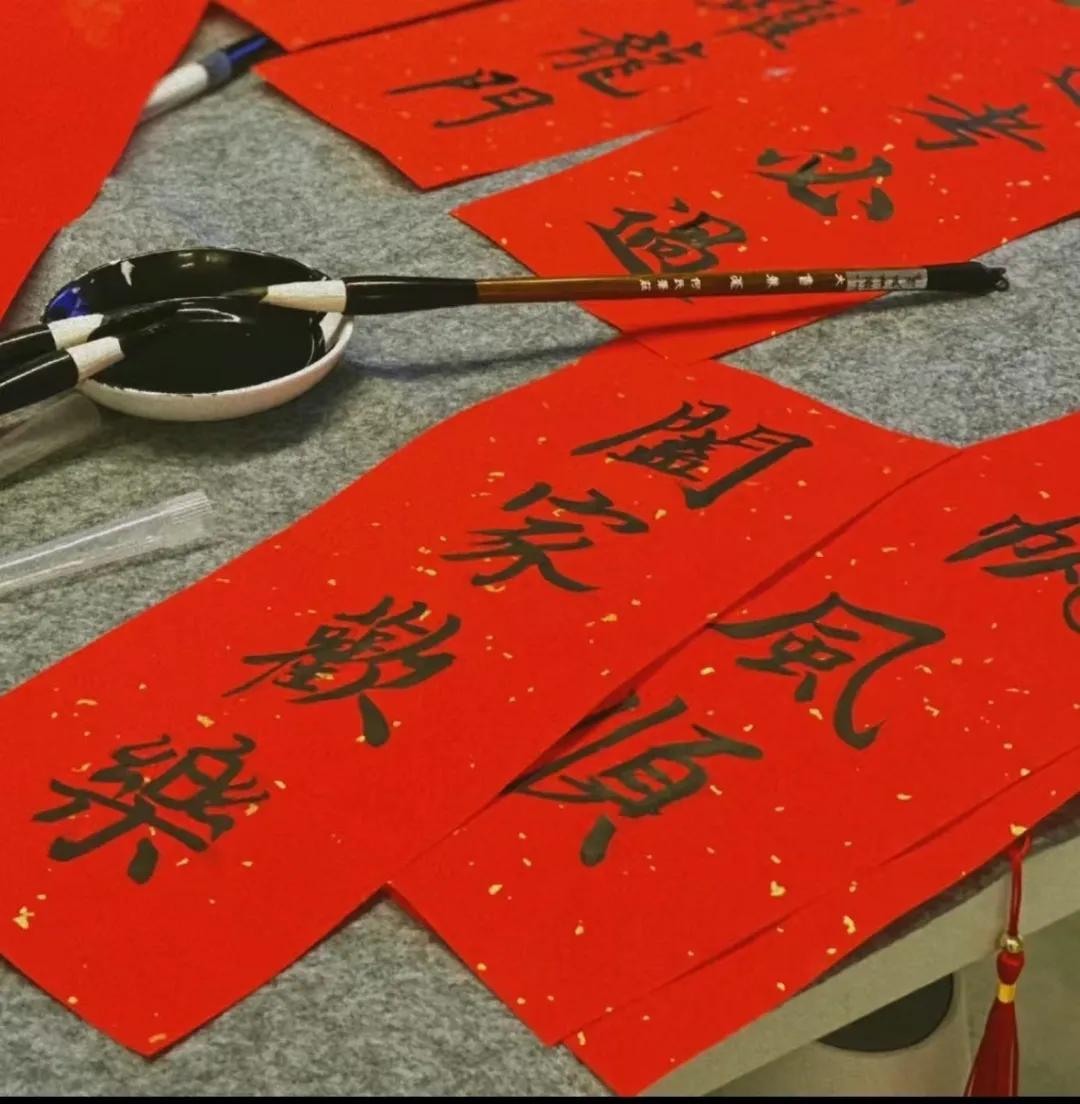 躍龍門
考必過
闔家歡樂
帆風順